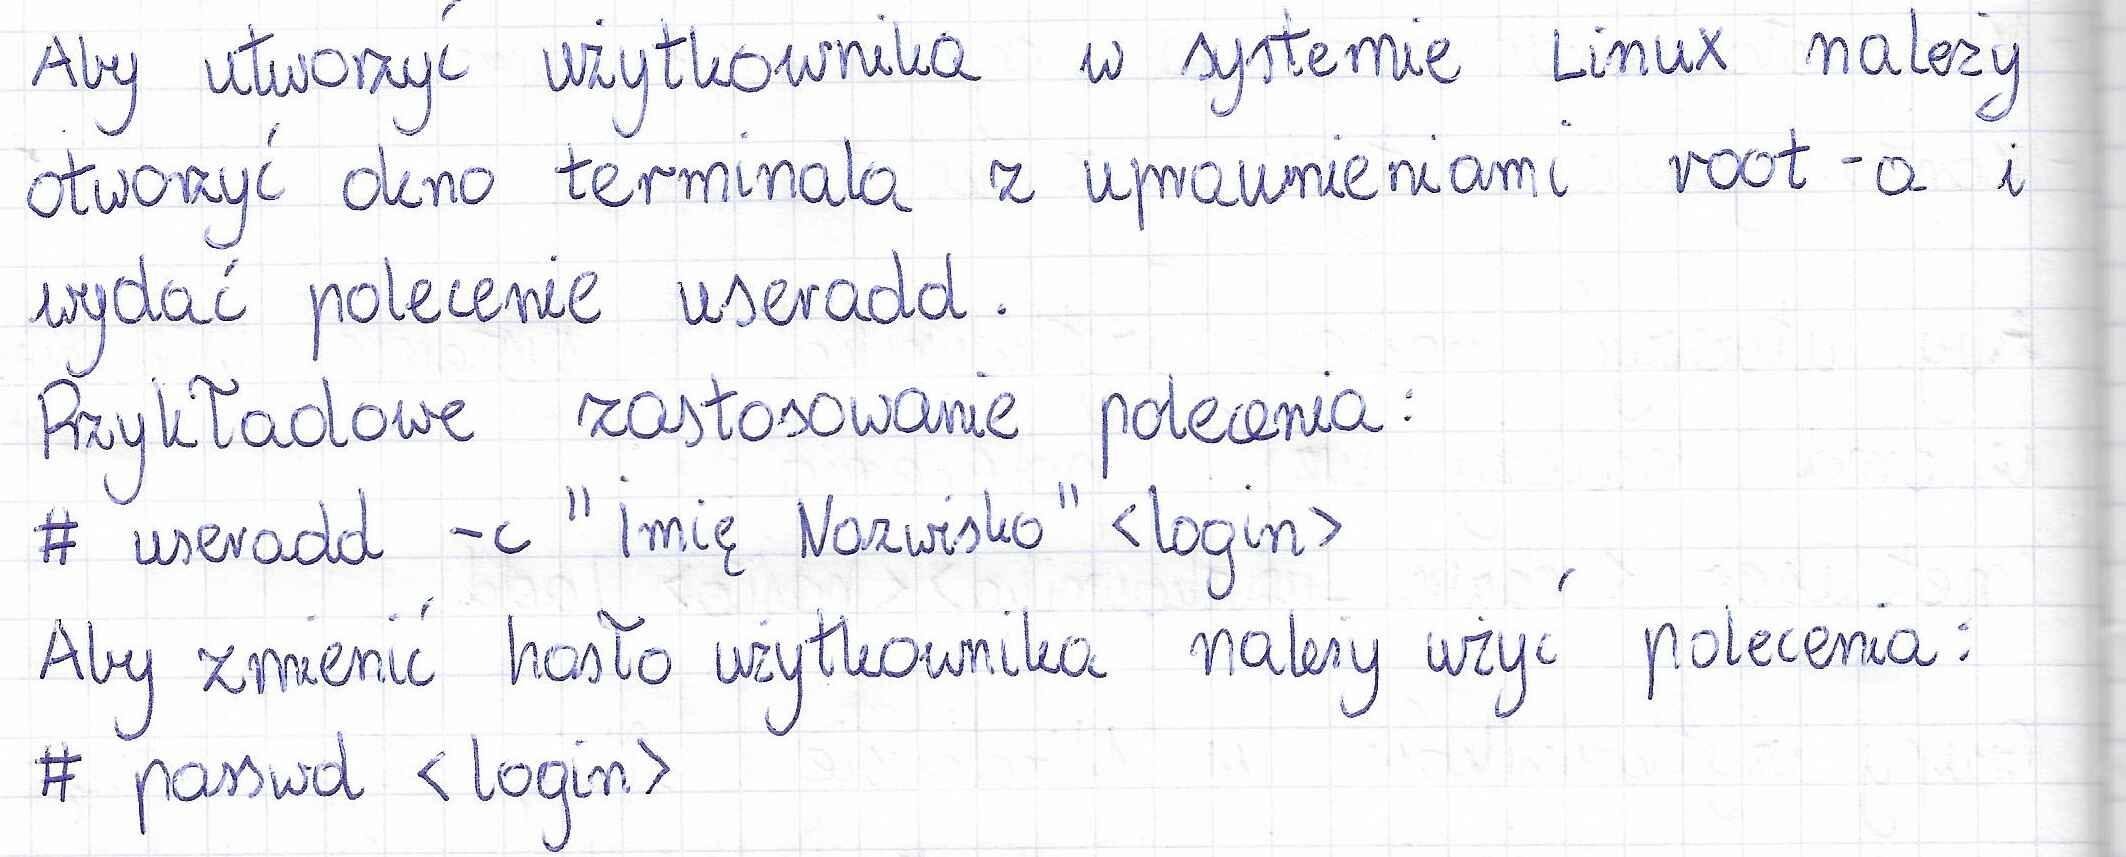 Aby utworzyć użytkownika w systemie Linux należy
otworzyć okno terminala z uprawnieniami root-a i
wydać polecenie useradd.
Przykładowe zastosowanie polecenia:
# useradd -c "Imię Nazwisko" <login>
Aby zmienić hasło użytkownika należy użyć polecenia:
# passwd <login>